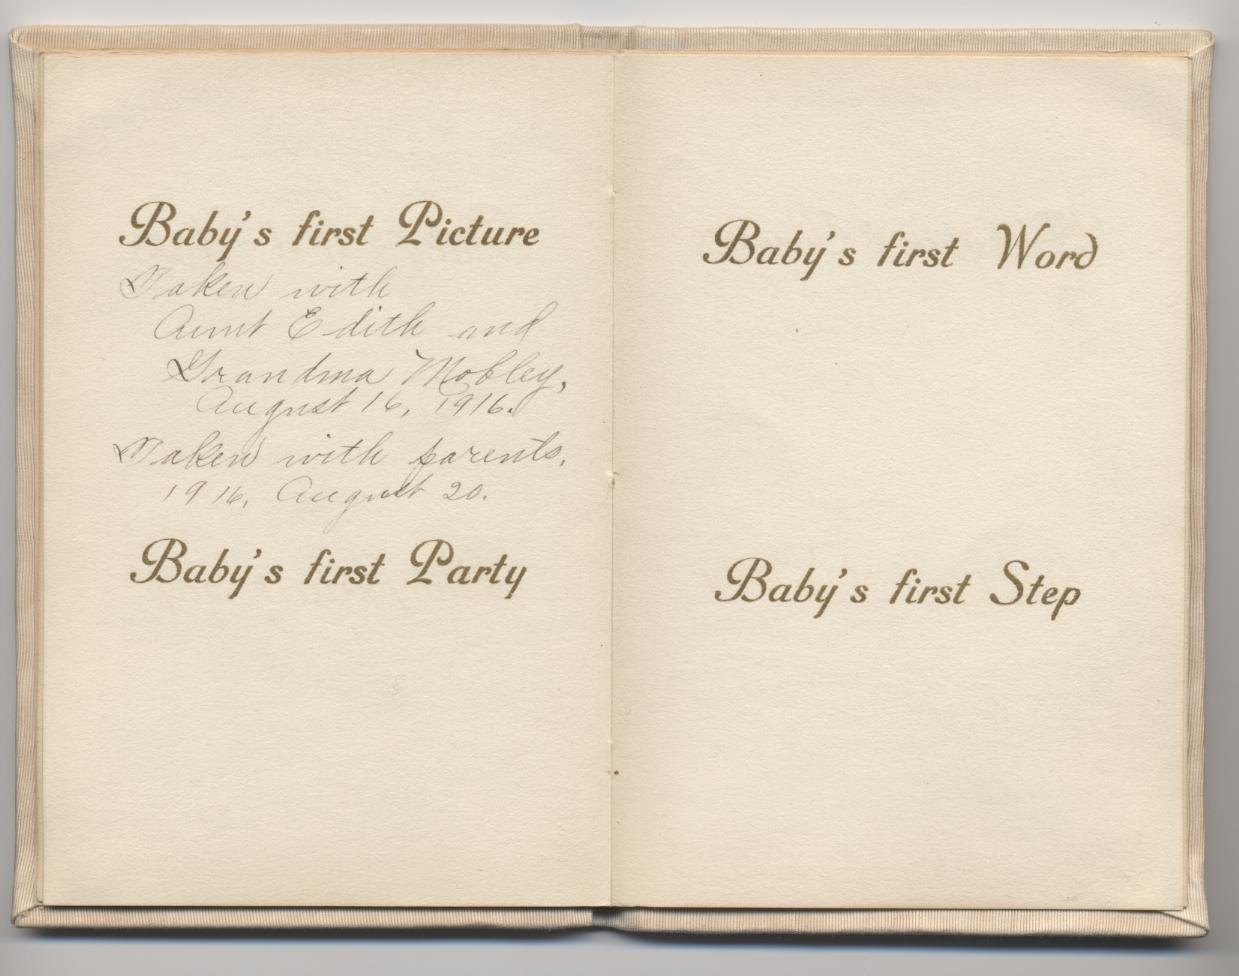 Baby's first Picture
Taken with
Aunt Edith and
Grandma Mobley,
August 16, 1916.
Taken with parents,
1916, August 20.
Baby's first Party
Baby's first Word
Baby's first Step